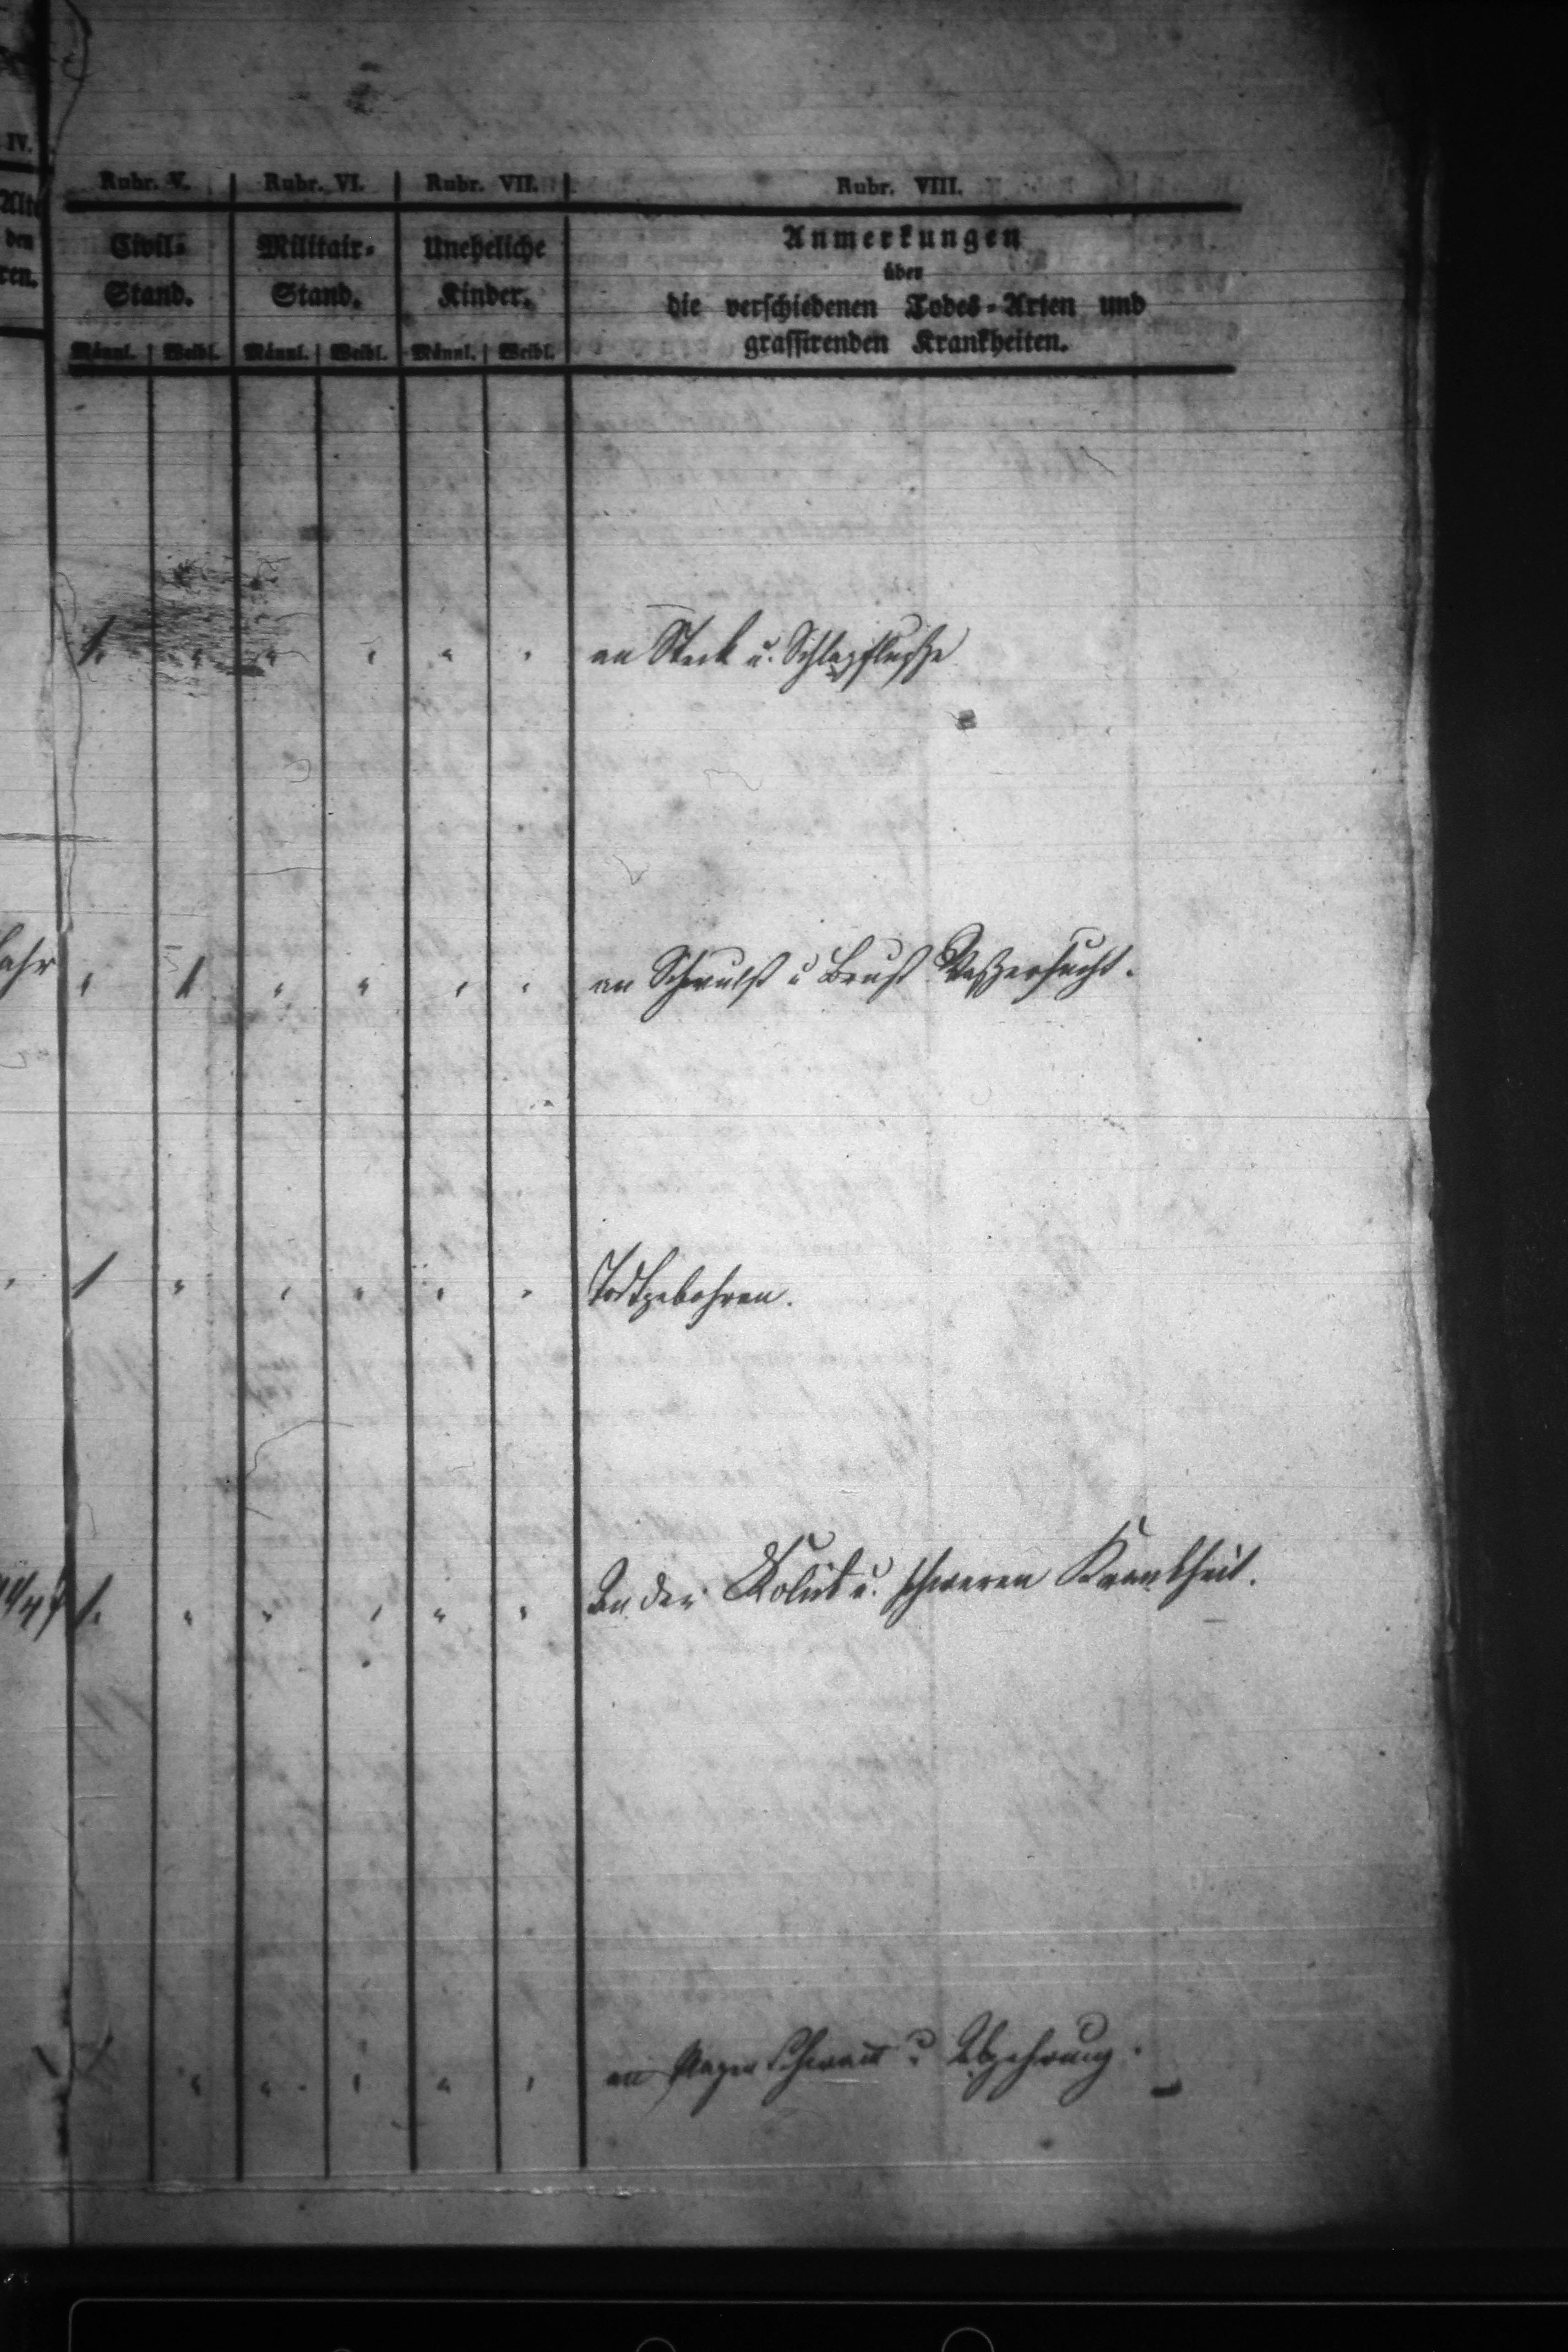 IV.
Rubr. V. Rubr. VI. Rubr. VII. Rubr. VIII.
Civil-
Stand.
Militair-
Stand.
Uneheliche
Kinder.
Anmerkungen
über
die verschiedenen Todes-Arten und
grassirenden Krankheiten.
Männl. Weibl. Männl. Weibl. Männl. Weibl.
den
ren.
1. " " " " " an Steck u. Schlagflusse
" 1 " " " " an Schwulst u Brust Wassersucht.
1 " " " " " Todtgebohren.
1. " " " " " An der Kolik u. schweren Krankheit.
" " " " " an Abzehrung.